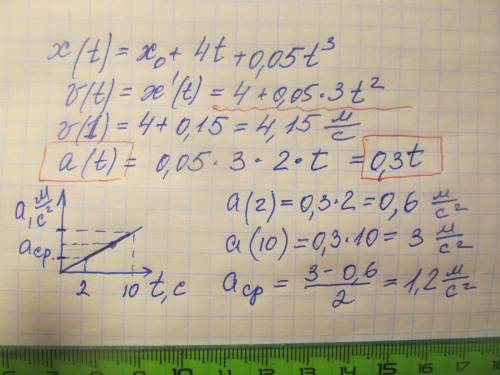 x(t) = x₀ + 4t + 0,05t³
v(t) = x'(t) = 4 + 0,05·3t²
v(1) = 4 + 0,15 = 4,15 м/с
a(t) = 0,05·3·2·t = 0,3t
a, м/с²
aср.
2 10 t, с
a(2) = 0,3·2 = 0,6 м/с²
a(10) = 0,3·10 = 3 м/с²
aср = (3-0,6)/2 = 1,2 м/с²
6 7 8 9 10 11 12 13 14 15 16 17